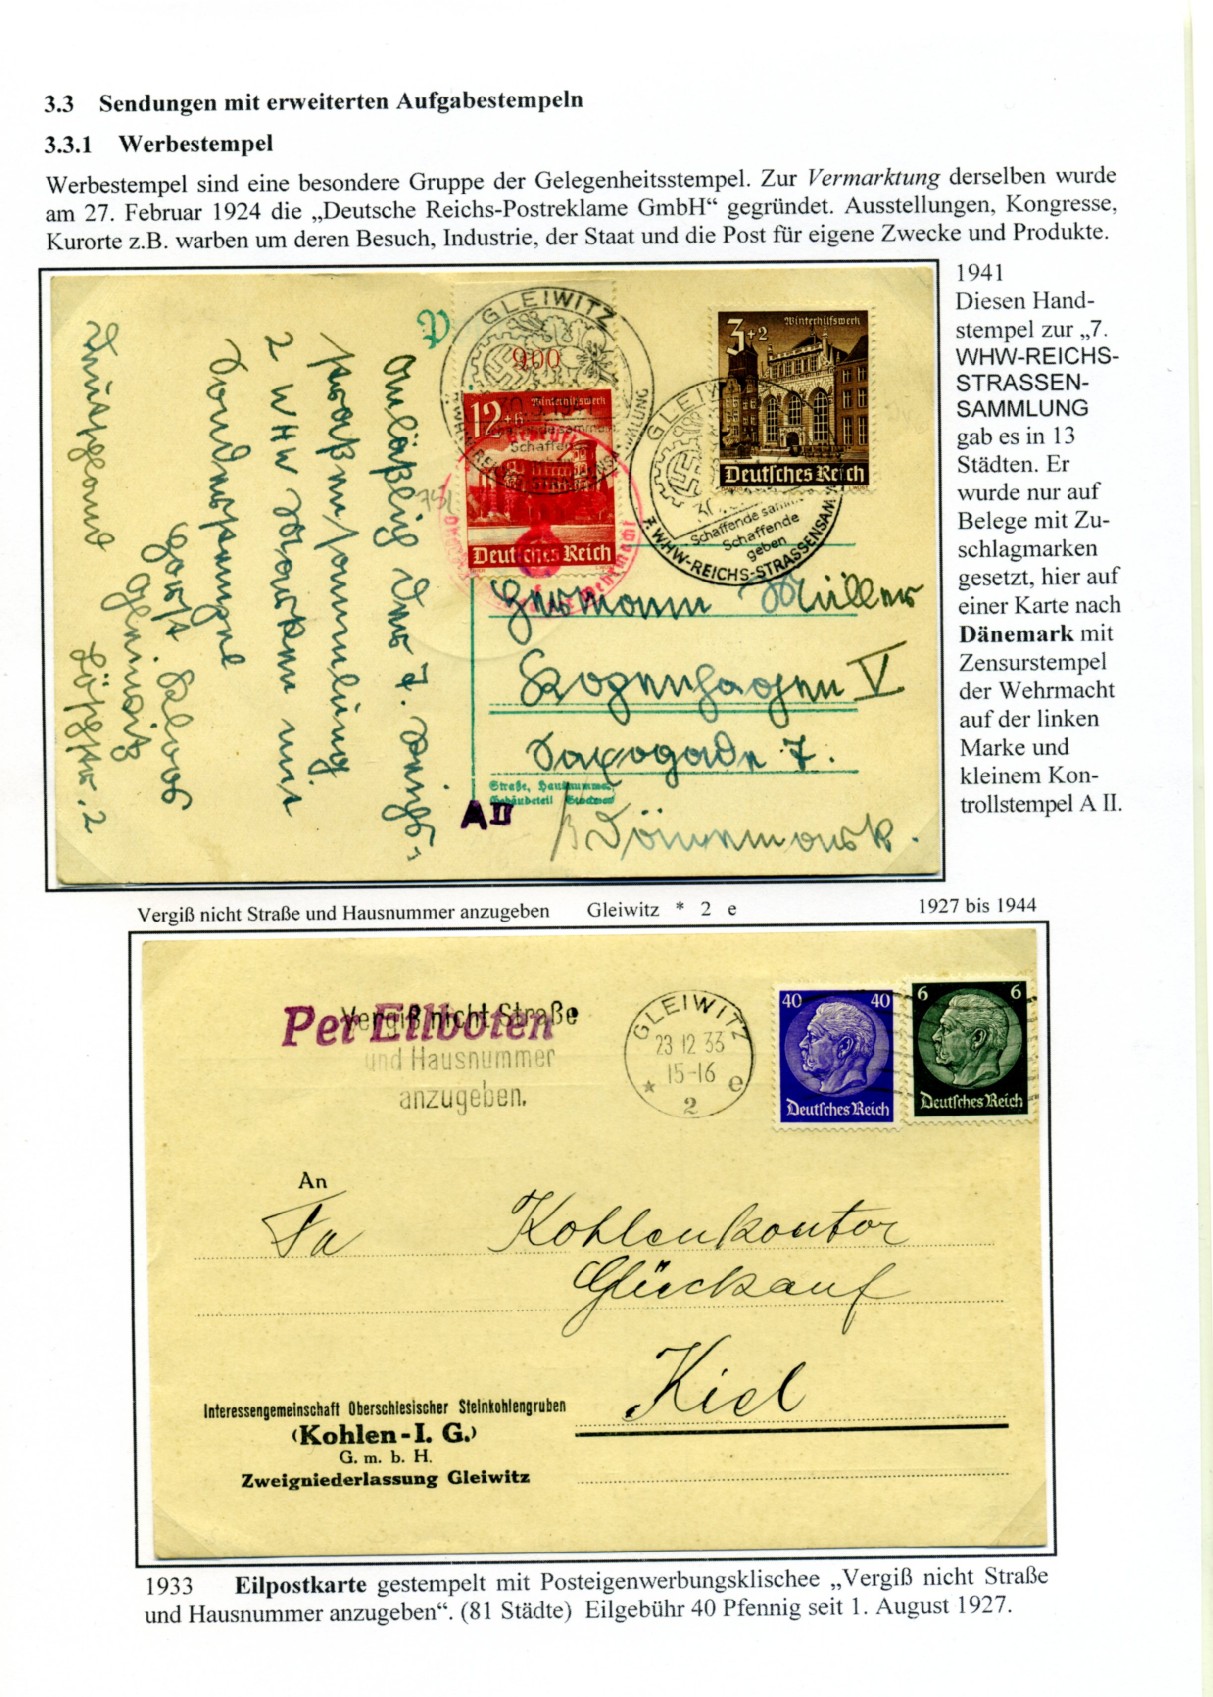 3.3 Sendungen mit erweiterten Aufgabestempeln
3.3.1 Werbestempel
Werbestempel sind eine besondere Gruppe der Gelegenheitsstempel. Zur Vermarktung derselben wurde
am 27. Februar 1924 die „Deutsche Reichs-Postreklame GmbH“ gegründet. Ausstellungen, Kongresse,
Kurorte z.B. warben um deren Besuch, Industrie, der Staat und die Post für eigene Zwecke und Produkte.
1941
Diesen Hand-
stempel zur „7.
WHW-REICHS-
STRASSEN-
SAMMLUNG
gab es in 13
Städten. Er
wurde nur auf
Belege mit Zu-
schlagmarken
gesetzt, hier auf
einer Karte nach
Dänemark mit
Zensurstempel
der Wehrmacht
auf der linken
Marke und
kleinem Kon-
trollstempel A II.
GLEIWITZ
900
12+6 Winterhilfswerk
Deutsches Reich
3+2 Winterhilfswerk
Deutsches Reich
GLEIWITZ
Schaffende
Schaffende
geben
7. WHW-REICHS-STRASSENSAM
Anläßlich der 7. Reichs-
straßensammlung
2 WHW Marken mit
Sonderstempel
Horst Klos
Gleiwitz
Hermann Müller
Kopenhagen V
Saxogade 7.
Straße, Hausnummer,
Gebäudeteil Stockwerk
A II
Dänemark.
Vergiß nicht Straße und Hausnummer anzugeben Gleiwitz * 2 e 1927 bis 1944
Per Eilboten
Vergiß nicht Straße
und Hausnummer
anzugeben.
GLEIWITZ
23 12 33
15-16
* 2 e
40 40
Deutsches Reich
6 6
Deutsches Reich
An
Fa Kohlenkontor
Glückauf
Kiel
Interessengemeinschaft Oberschlesischer Steinkohlengruben
(Kohlen-I. G.)
G. m. b. H.
Zweigniederlassung Gleiwitz
1933 Eilpostkarte gestempelt mit Posteigenwerbungsklischee „Vergiß nicht Straße
und Hausnummer anzugeben“. (81 Städte) Eilgebühr 40 Pfennig seit 1. August 1927.